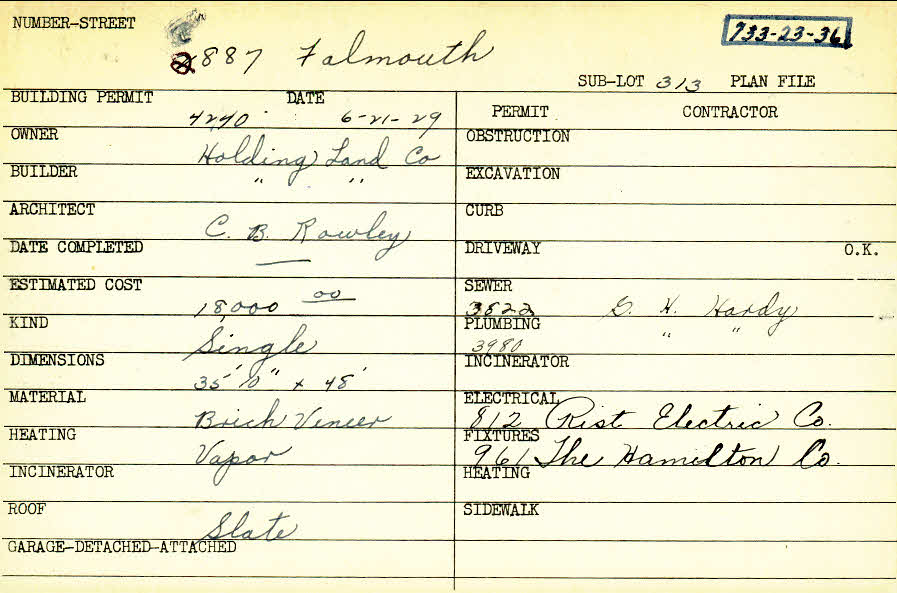 NUMBER-STREET
733-23-36
2887 Falmouth
SUB-LOT 313 PLAN FILE
BUILDING PERMIT DATE
4240 6-21-29
OWNER
Holding Land Co
BUILDER
" "
ARCHITECT
C. B. Rowley
DATE COMPLETED
—
ESTIMATED COST
18,000 00
KIND
Single
DIMENSIONS
35' 10" x 48'
MATERIAL
Brick Veneer
HEATING
Vapor
INCINERATOR
ROOF
Slate
GARAGE-DETACHED-ATTACHED
PERMIT CONTRACTOR
OBSTRUCTION
EXCAVATION
CURB
DRIVEWAY O.K.
SEWER
3822 G. H. Hardy
PLUMBING " "
3980
INCINERATOR
ELECTRICAL
812 Rist Electric Co.
FIXTURES
961 The Hamilton Co.
HEATING
SIDEWALK